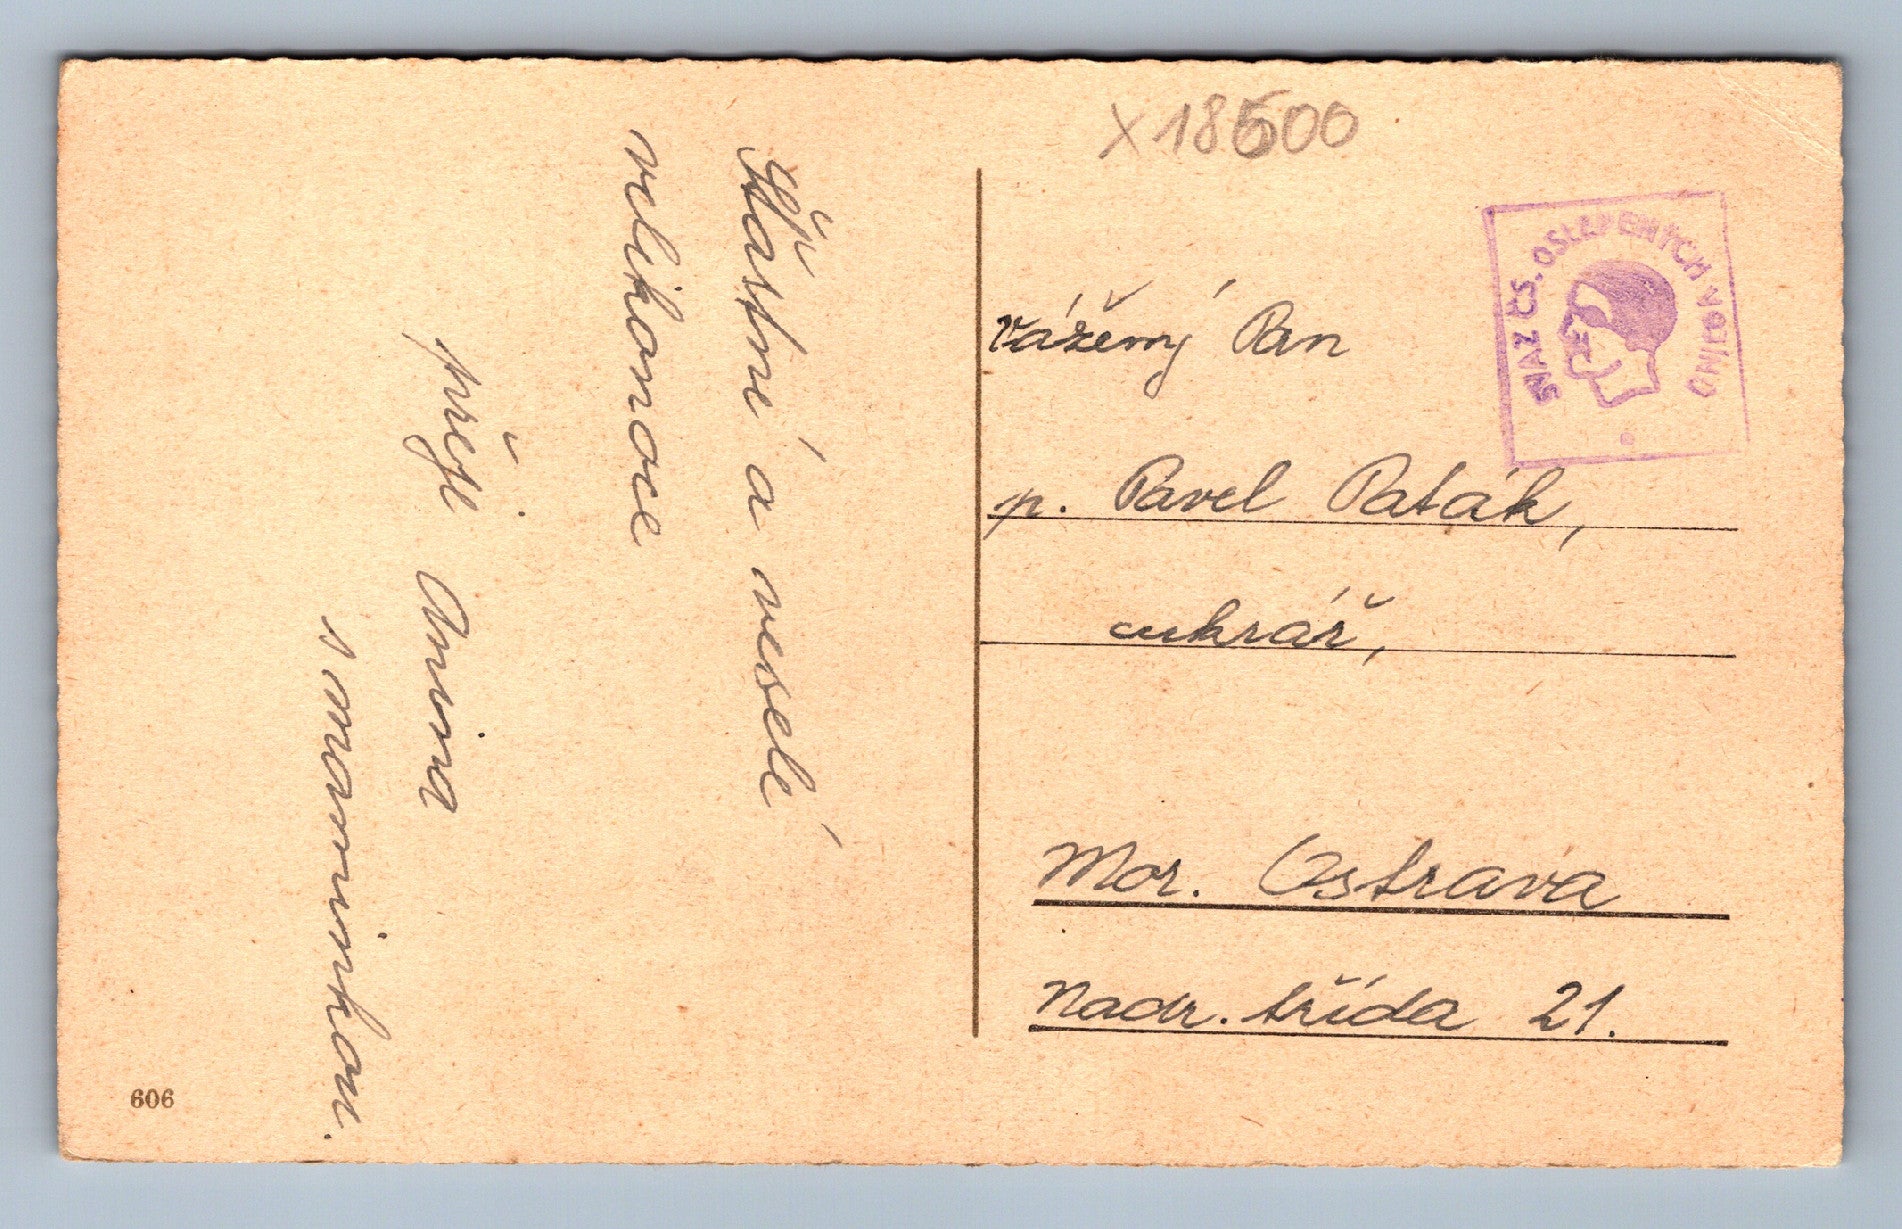 x 18600
SVAZ ČS. OSLEPENÝCH VOJÍNŮ
Vážený Pan
p. Pavel Paták,
cukrář,
Mor. Ostrava
Nádr. třída 21.
Šťastné a veselé
velikonoce
přeje Anna
s maminkou.
606